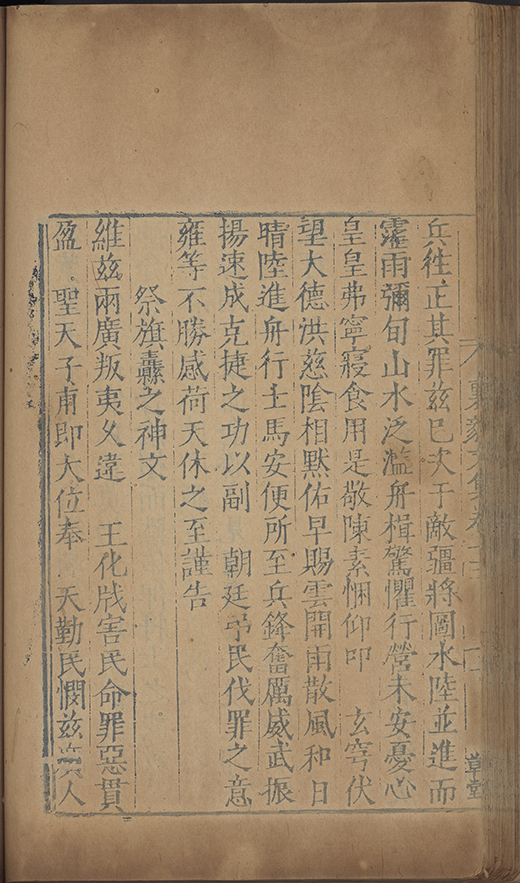 兵徃正其罪兹已次于敵疆將圖水陸並進而
霪雨彌旬山水泛濫舟楫驚懼行營未安憂心
皇皇弗寧寢食用是敬陳素悃仰叩　玄穹伏
望大德洪慈隂相黙佑早賜雲開雨散風和日
晴陸進舟行士馬安便所至兵鋒奮厲威武振
揚速成克捷之功以副　朝廷弔民伐罪之意
雍等不勝感荷天休之至謹告
祭旗纛之神文
維兹兩廣叛夷乆違　王化戕害民命罪惡貫
盈　聖天子甫即大位奉　天勤民憫兹　人
襄毅文集卷十
草堂